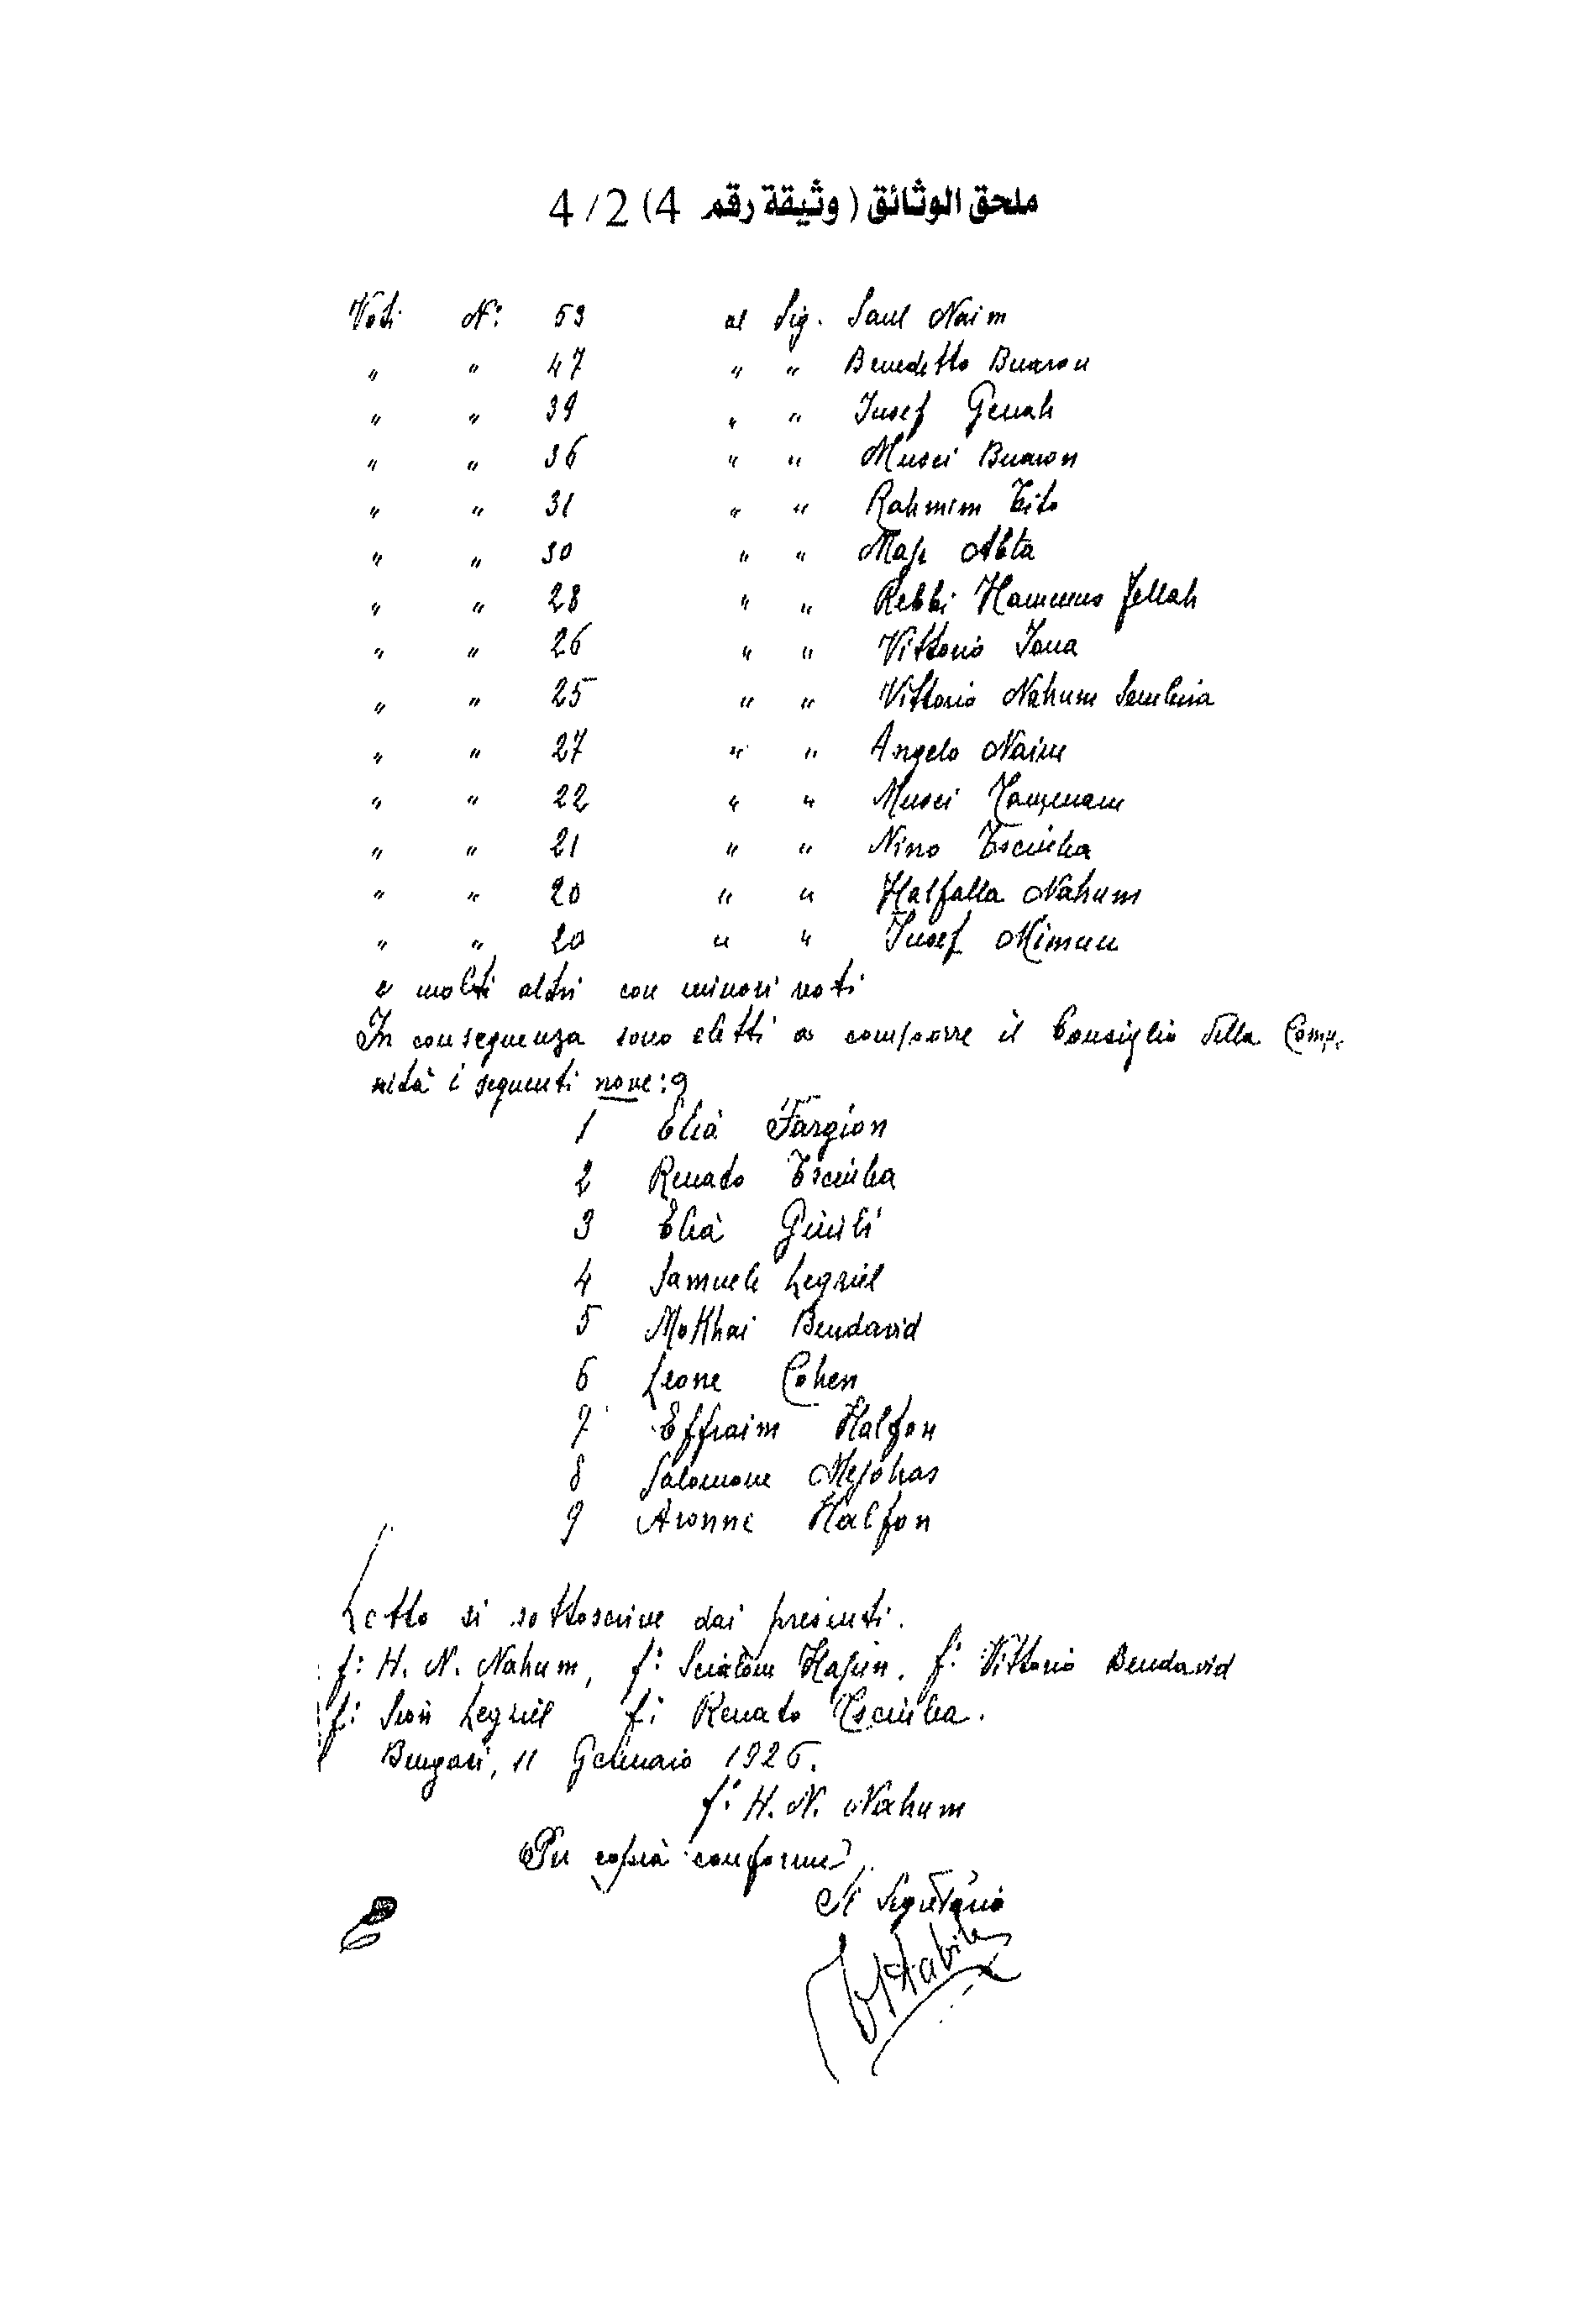 ملحق الوثائق ( وثيقة رقم 4) 4/2
Voti N: 53 al Sig. Saul Naim
" " 47 " " Benedetto Buaron
" " 39 " " Jusef Genah
" " 36 " " Musci Buaron
" " 31 " " Rahmim Tito
" " 30 " "
" " 28 " " Rebbi Hammus Fellah
" " 26 " " Vittorio Jona
" " 25 " " Vittorio Nahum
" " 27 " " Angelo Naim
" " 22 " " Musci
" " 21 " " Nino Tsciuba
" " 20 " " Halfalla Nahum
" " 20 " " Jusef Mimun
e molti altri con minori voti
In conseguenza sono eletti a comporre il Consiglio della Comu-
nità i seguenti nove: 9
1 Elia Fargion
2 Renato Tsciuba
3 Elia Giuili
4 Samuele Legziel
5 MoKhai Bendavid
6 Leone Cohen
7 Effraim Halfon
8 Salomone
9 Aronne Halfon
Letto si sottoscrive dai presenti.
f: H. N. Nahum, f: Scialom f: Vittorio Bendavid
f: Sion Legziel f: Renato Tsciuba.
Bengasi, 11 Gennaio 1926.
f: H. N. Nahum
Per copia conforme
Il Segretario